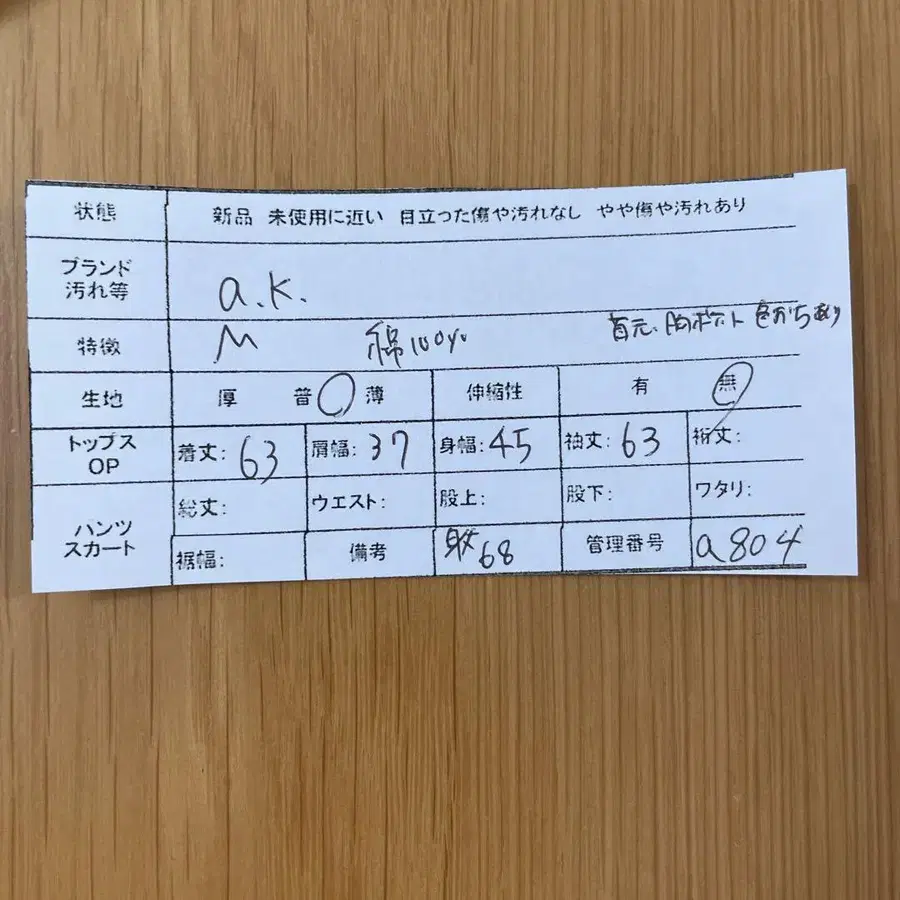 状態 新品 未使用に近い 目立った傷や汚れなし やや傷や汚れあり
ブランド
汚れ等 a.k.
特徴 M 綿100% 首元、胸ポケット 色がちあり
生地 厚 普 薄 伸縮性 有 無
トップス
OP 着丈: 63 肩幅: 37 身幅: 45 袖丈: 63 裄丈:
パンツ
スカート 総丈: ウエスト: 股上: 股下: ワタリ:
裾幅: 備考 68 管理番号 a804